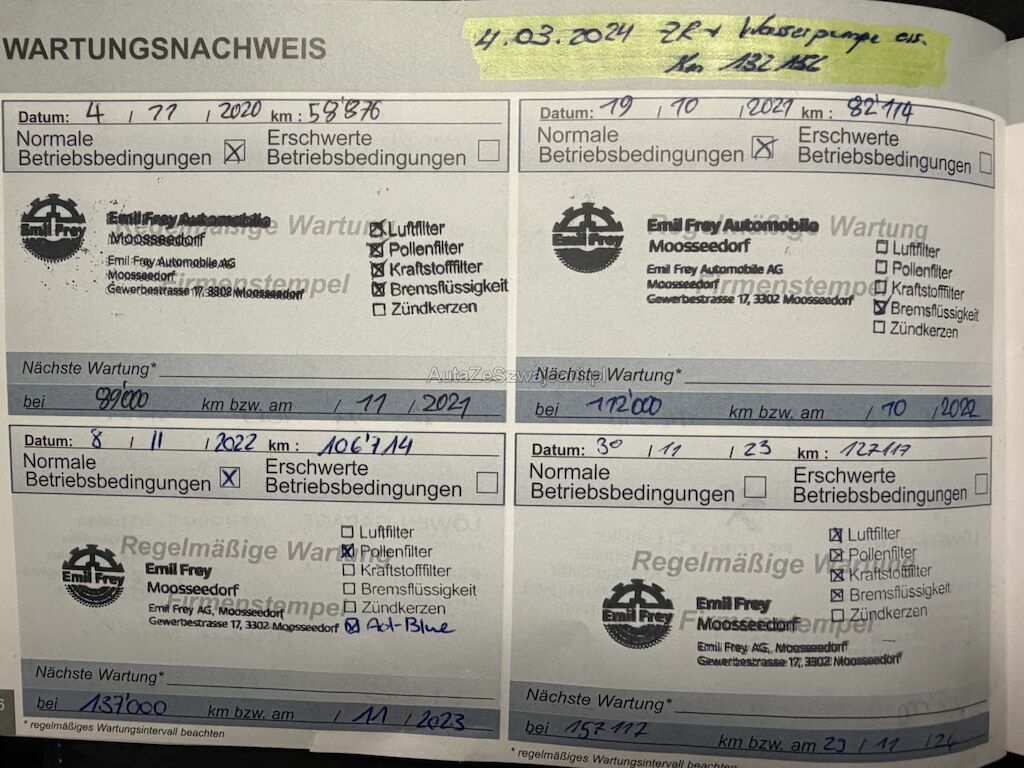 WARTUNGSNACHWEIS
4.03.2024 ZR + Wasserpumpe
Km 132156
Datum: 4 / 11 / 2020 km : 58'876
Normale
Betriebsbedingungen ☒
Erschwerte
Betriebsbedingungen ☐
Regelmäßige Wartung
Firmenstempel
Emil Frey
Emil Frey Automobile
Moosseedorf
Emil Frey Automobile AG
Moosseedorf
Gewerbestrasse 17, 3302 Moosseedorf
☒ Luftfilter
☒ Pollenfilter
☒ Kraftstofffilter
☒ Bremsflüssigkeit
☐ Zündkerzen
Nächste Wartung*
bei 89'000 km bzw. am / 11 / 2021
Datum: 19 / 10 / 2021 km : 82'114
Normale
Betriebsbedingungen ☒
Erschwerte
Betriebsbedingungen ☐
Regelmäßige Wartung
Firmenstempel
Emil Frey
Emil Frey Automobile
Moosseedorf
Emil Frey Automobile AG
Moosseedorf
Gewerbestrasse 17, 3302 Moosseedorf
☐ Luftfilter
☐ Pollenfilter
☐ Kraftstofffilter
☒ Bremsflüssigkeit
☐ Zündkerzen
Nächste Wartung*
bei 112'000 km bzw. am / 10 / 2022
AutaZeSzwajcarii.pl
Datum: 8 / 11 / 2022 km : 106'714
Normale
Betriebsbedingungen ☒
Erschwerte
Betriebsbedingungen ☐
Regelmäßige Wartung
Firmenstempel
Emil Frey
Emil Frey
Moosseedorf
Emil Frey AG, Moosseedorf
Gewerbestrasse 17, 3302 Moosseedorf
☐ Luftfilter
☒ Pollenfilter
☐ Kraftstofffilter
☐ Bremsflüssigkeit
☐ Zündkerzen
☒ Ad-Blue
Nächste Wartung*
bei 137'000 km bzw. am / 11 / 2023
* regelmäßiges Wartungsintervall beachten
Datum: 30 / 11 / 23 km : 127117
Normale
Betriebsbedingungen ☐
Erschwerte
Betriebsbedingungen ☐
Regelmäßige Wartung
Firmenstempel
Emil Frey
Emil Frey
Moosseedorf
Emil Frey AG, Moosseedorf
Gewerbestrasse 17, 3302 Moosseedorf
☒ Luftfilter
☒ Pollenfilter
☒ Kraftstofffilter
☒ Bremsflüssigkeit
☐ Zündkerzen
Nächste Wartung*
bei 157117 km bzw. am 29 / 11 / 24
* regelmäßiges Wartungsintervall beachten
6